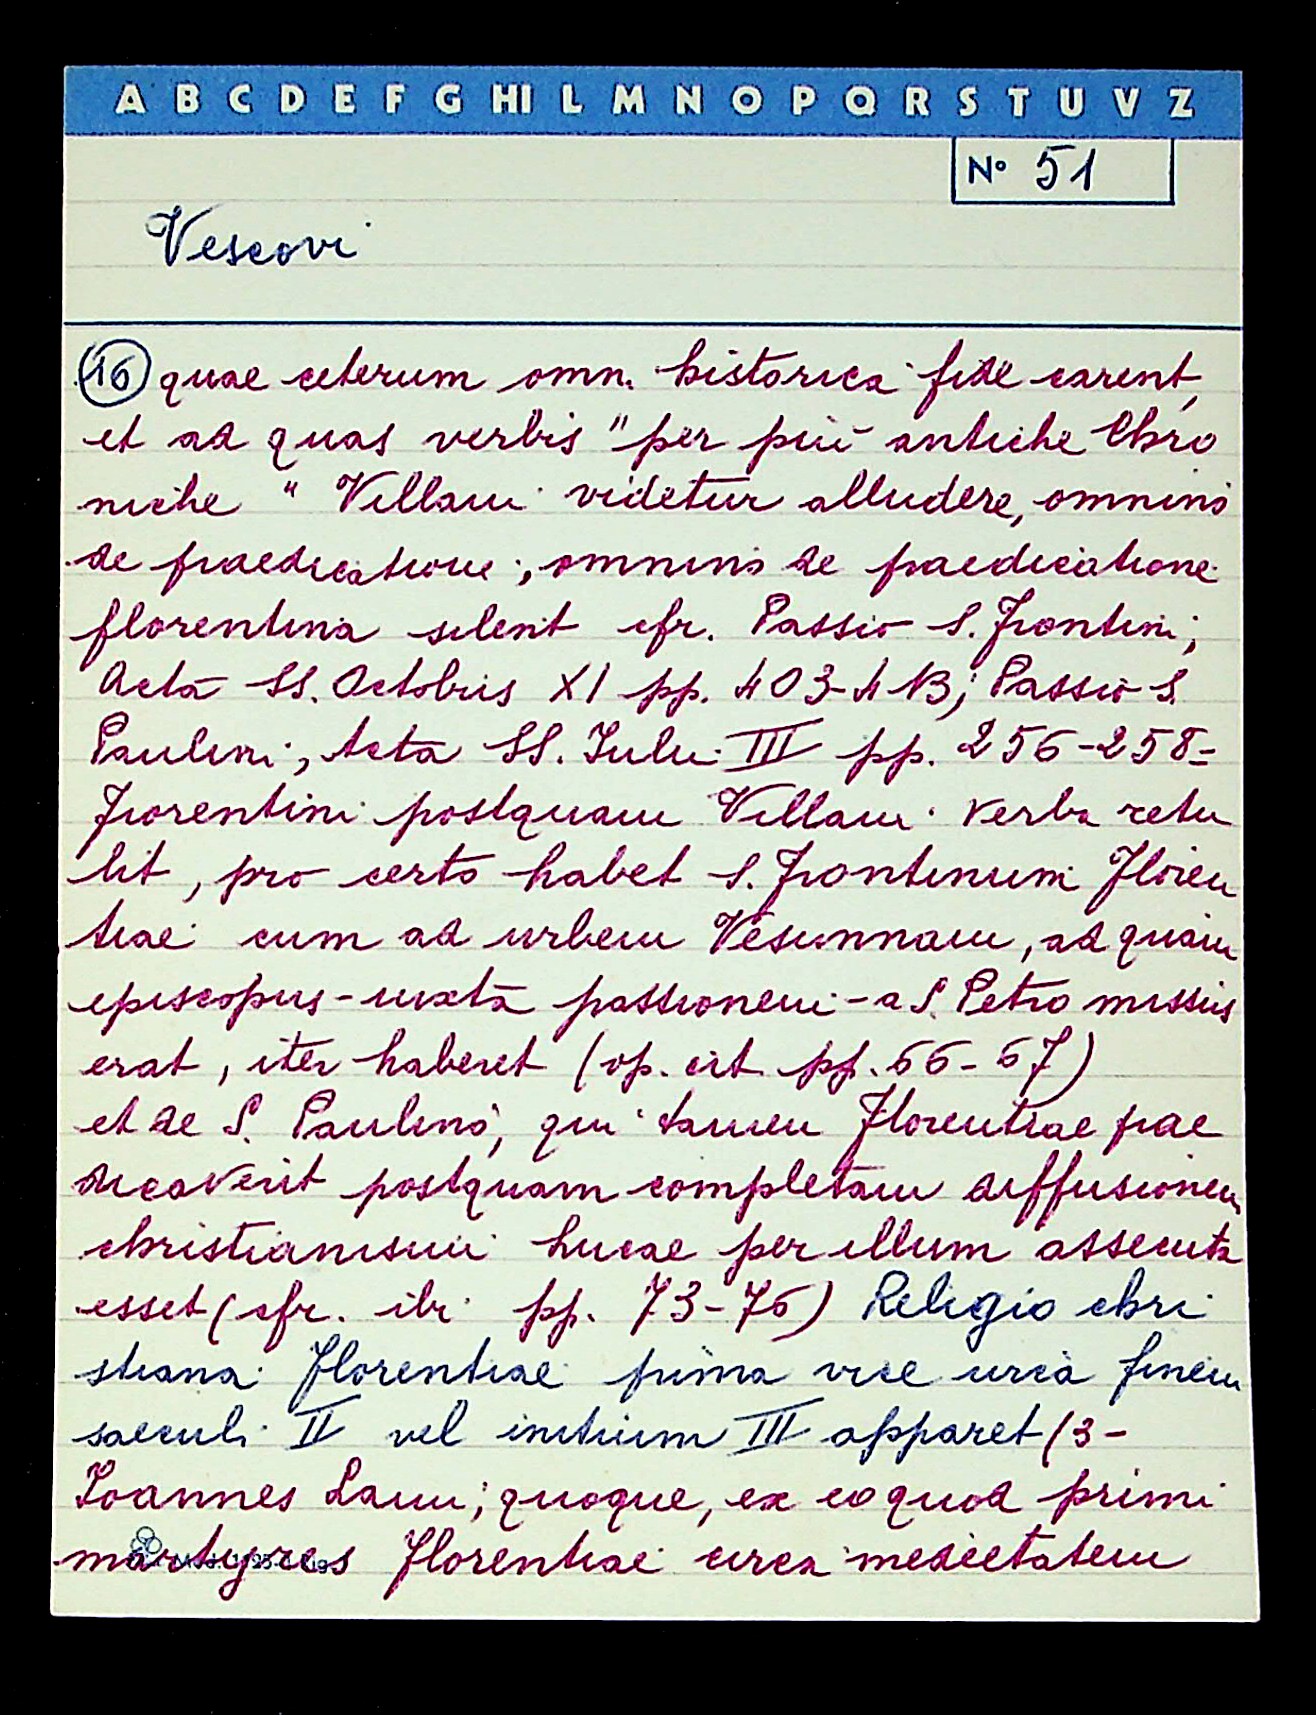 A B C D E F G HI L M N O P Q R S T U V Z
N° 51
Vescovi
16 quae ceterum omn. historica fide carent,
et ad quas verbis "per più antiche Chro
niche " Villani videtur alludere, omnino
de praedicatione, omnino de praedicatione
florentina silent cfr. Passio S. Frontini;
Acta SS. Octobris XI pp. 403-413; Passio S.
Paulini, Acta SS. Iulii III pp. 256-258=
Fiorentini postquam Villani verba retu
lit, pro certo habet S. Frontinum Floren
tiae cum ad urbem Vesunnam, ad quam
episcopus - iuxta passionem - a S. Petro missus
erat, iter haberet (op. cit pp. 66-67)
et de S. Paulino, qui tamen Florentiae prae
dicaverit postquam completam diffusionem
christianismi lucae per illum assecuta
esset (cfr. ibi pp. 73-75) Religio chri
stiana Florentiae prima vice circa finem
saeculi II vel initium III apparet (3-
Ioannes Lami; quoque, ex eo quod primi
martyres Florentiae circa medietatem